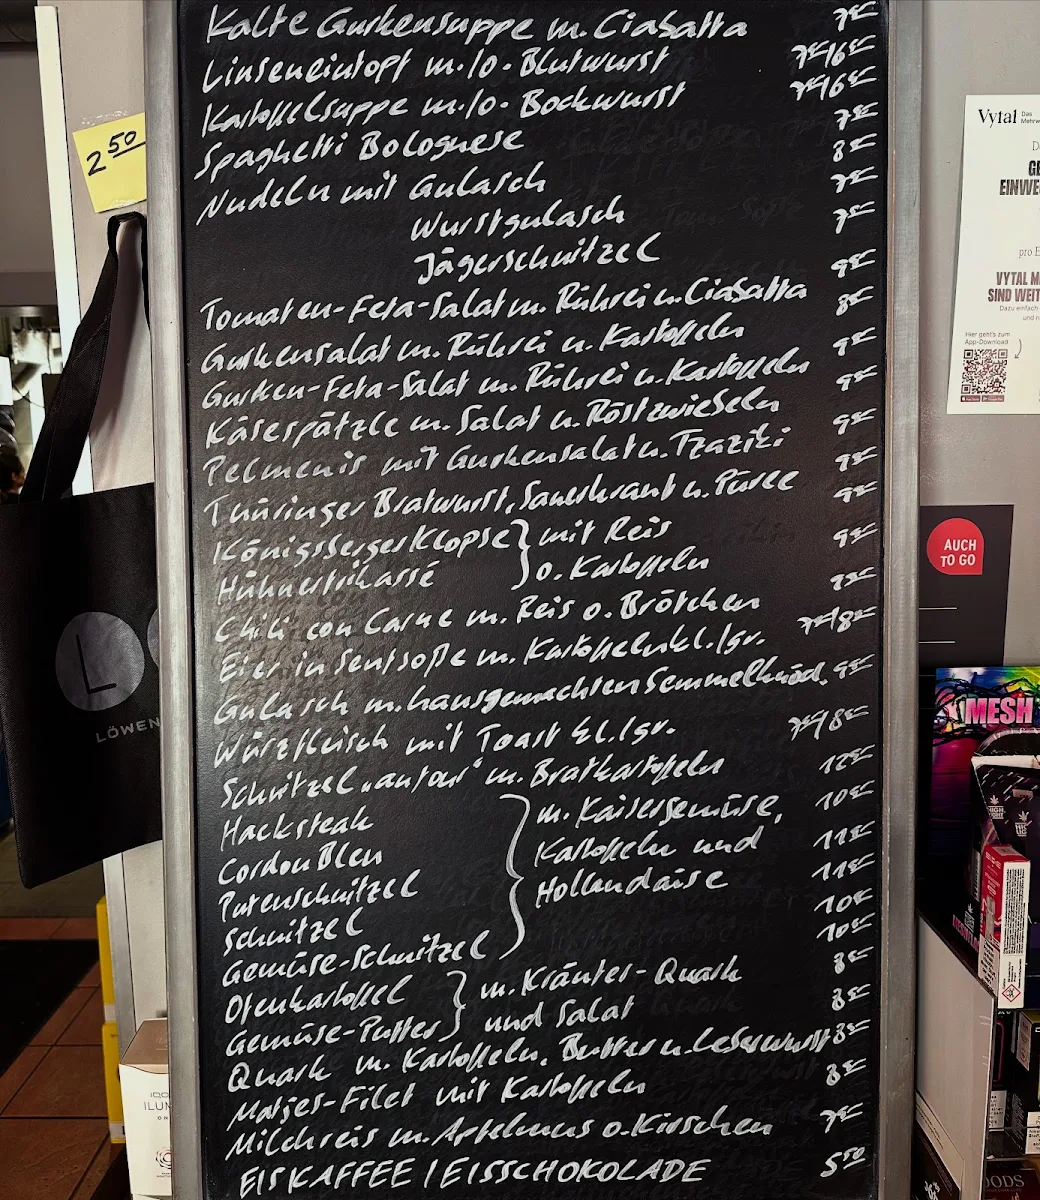 Kalte Gurkensuppe m. Ciabatta 7€
Linseneintopf m./o. Blutwurst 7€/6€
Kartoffelsuppe m./o. Bockwurst 7€/6€
Spaghetti Bolognese 7€
Nudeln mit Gulasch 8€
Wurstgulasch 7€
Jägerschnitzel 7€
Tomaten-Feta-Salat m. Rührei u. Ciabatta 9€
Gurkensalat m. Rührei u. Kartoffeln 8€
Gurken-Feta-Salat m. Rührei u. Kartoffeln 9€
Käsespätzle m. Salat u. Röstzwiebeln 9€
Pelmenis mit Gurkensalat u. Tzaziki 9€
Thüringer Bratwurst, Sauerkraut u. Püree 9€
Königsberger Klopse } mit Reis 9€
Hühnerfrikassé } o. Kartoffeln 9€
Chili con Carne m. Reis o. Brötchen 8€
Eier in Senfsoße m. Kartoffeln kl./gr. 7€/8€
Gulasch m. hausgemachten Semmelknöd. 9€
Würzfleisch mit Toast kl./gr. 7€/8€
Schnitzel „aufour“ m. Bratkartoffeln 12€
Hacksteak } m. Kaisergemüse, 10€
Cordon Bleu } Kartoffeln und 11€
Putenschnitzel } Hollandaise 11€
Schnitzel 10€
Gemüse-Schnitzel 10€
Ofenkartoffel } m. Kräuter-Quark 8€
Gemüse-Puffer } und Salat 8€
Quark m. Kartoffeln, Butter u. Leberwurst 8€
Matjes-Filet mit Kartoffeln 8€
Milchreis m. Apfelmus o. Kirschen 7€
EISKAFFEE / EISSCHOKOLADE 5 50
2 50
L
LÖWEN
Vytal Das
VYTAL M
SIND WEIT
Dazu einfach
Hier geht's zum
App-Download
AUCH
TO GO
MESH